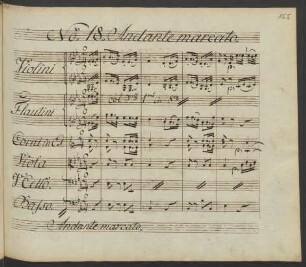 No 18. Andante marcato.
Violini
Flautini
Corni in
Viola
V.Cello.
Basso.
Andante marcato.